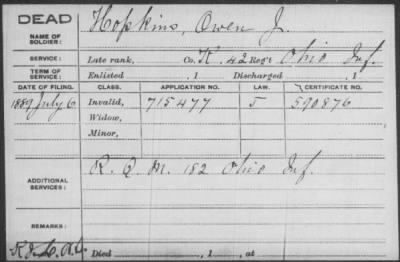 DEAD
NAME OF SOLDIER: Hopkins, Owen J.
SERVICE: Late rank, Co. K. 42 Reg't Ohio Inf.
TERM OF SERVICE: Enlisted , 1 Discharged , 1
DATE OF FILING. CLASS. APPLICATION NO. LAW. CERTIFICATE NO.
1889 July 6 Invalid, 715477 J 590876
Widow,
Minor,
ADDITIONAL SERVICES: R. Q. M. 182 Ohio Inf.
REMARKS:
Died , 1 , at